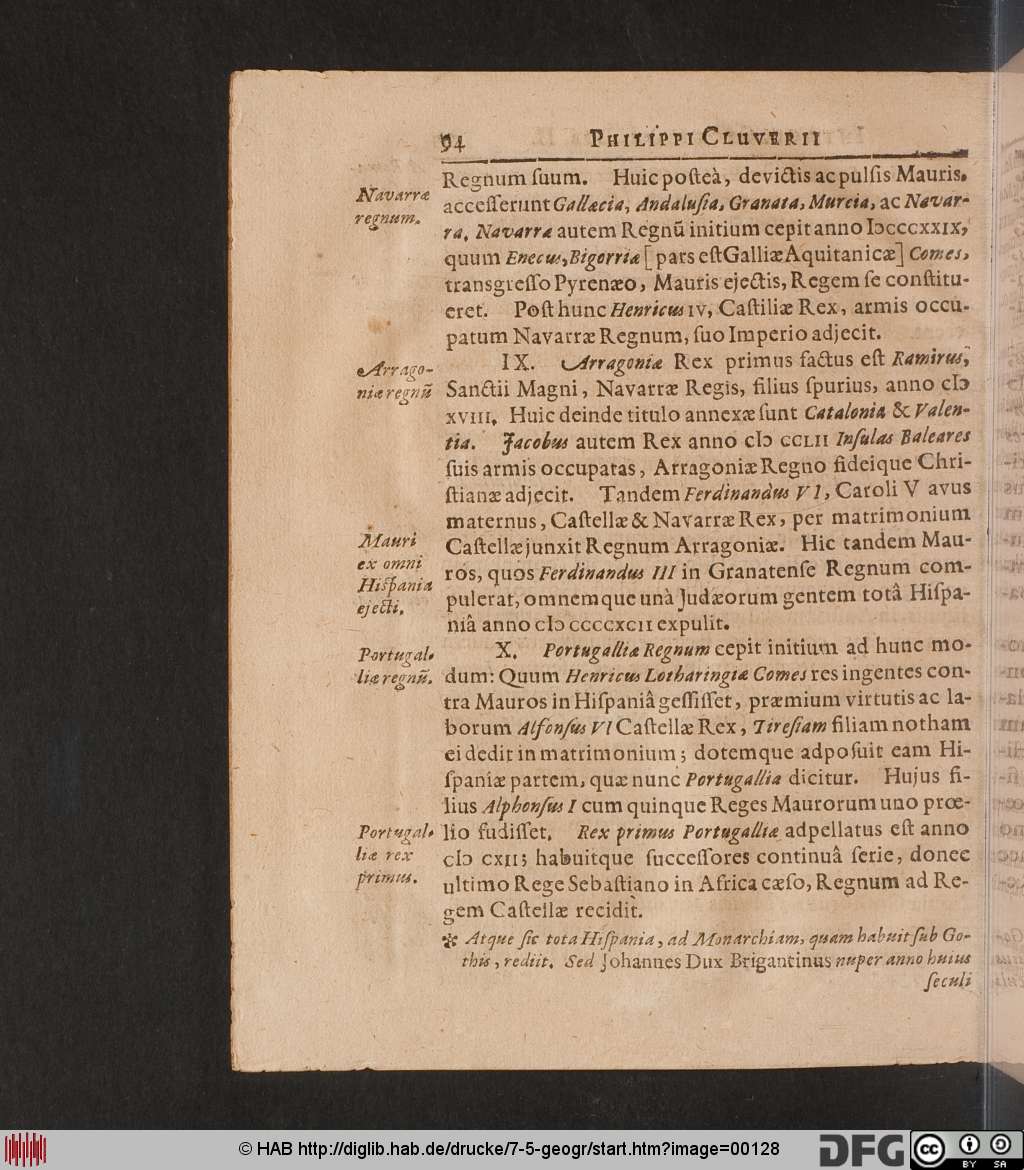 94 PHILIPPI CLUVERII
Regnum ſuum. Huic poſteà, devictis ac pulſis Mauris,
Navarræ
regnum.
acceſſerunt Gallæcia, Andaluſia, Granata, Murcia, ac Navar-
ra. Navarræ autem Regnū initium cepit anno IↃCCCXXIX,
quum Enecus, Bigorriæ [pars eſt Galliæ Aquitanicæ] Comes,
transgreſſo Pyrenæo, Mauris ejectis, Regem ſe conſtitu-
eret. Poſt hunc Henricus IV, Caſtiliæ Rex, armis occu-
patum Navarræ Regnum, ſuo Imperio adjecit.
Arrago-
niæ regnū
IX. Arragoniæ Rex primus factus eſt Ramirus,
Sanctii Magni, Navarræ Regis, filius ſpurius, anno cIↃ
XVIII. Huic deinde titulo annexæ ſunt Catalonia & Valen-
tia. Jacobus autem Rex anno cIↃ CCLII Inſulas Baleares
ſuis armis occupatas, Arragoniæ Regno fideique Chri-
ſtianæ adjecit. Tandem Ferdinandus VI, Caroli V avus
maternus, Caſtellæ & Navarræ Rex, per matrimonium
Caſtellæ junxit Regnum Arragoniæ. Hic tandem Mau-
Mauri
ex omni
Hiſpania
ejecti.
ros, quos Ferdinandus III in Granatenſe Regnum com-
pulerat, omnemque unà Judæorum gentem totâ Hiſpa-
niâ anno cIↃ CCCCXCII expulit.
Portugal-
liæ regnū.
X. Portugalliæ Regnum cepit initium ad hunc mo-
dum: Quum Henricus Lotharingiæ Comes res ingentes con-
tra Mauros in Hiſpaniâ geſſiſſet, præmium virtutis ac la-
borum Alfonſus VI Caſtellæ Rex, Tireſiam filiam notham
ei dedit in matrimonium; dotemque adpoſuit eam Hi-
ſpaniæ partem, quæ nunc Portugallia dicitur. Hujus fi-
lius Alphonſus I cum quinque Reges Maurorum uno prœ-
Portugal-
liæ rex
primus.
lio fudiſſet, Rex primus Portugalliæ adpellatus eſt anno
cIↃ CXII; habuitque ſucceſſores continuâ ſerie, donec
ultimo Rege Sebaſtiano in Africa cæſo, Regnum ad Re-
gem Caſtellæ recidit.
✻ Atque ſic tota Hiſpania, ad Monarchiam, quam habuit ſub Go-
this, rediit. Sed Johannes Dux Brigantinus nuper anno huius
ſeculi
© HAB http://diglib.hab.de/drucke/7-5-geogr/start.htm?image=00128
DFG
cc BY SA